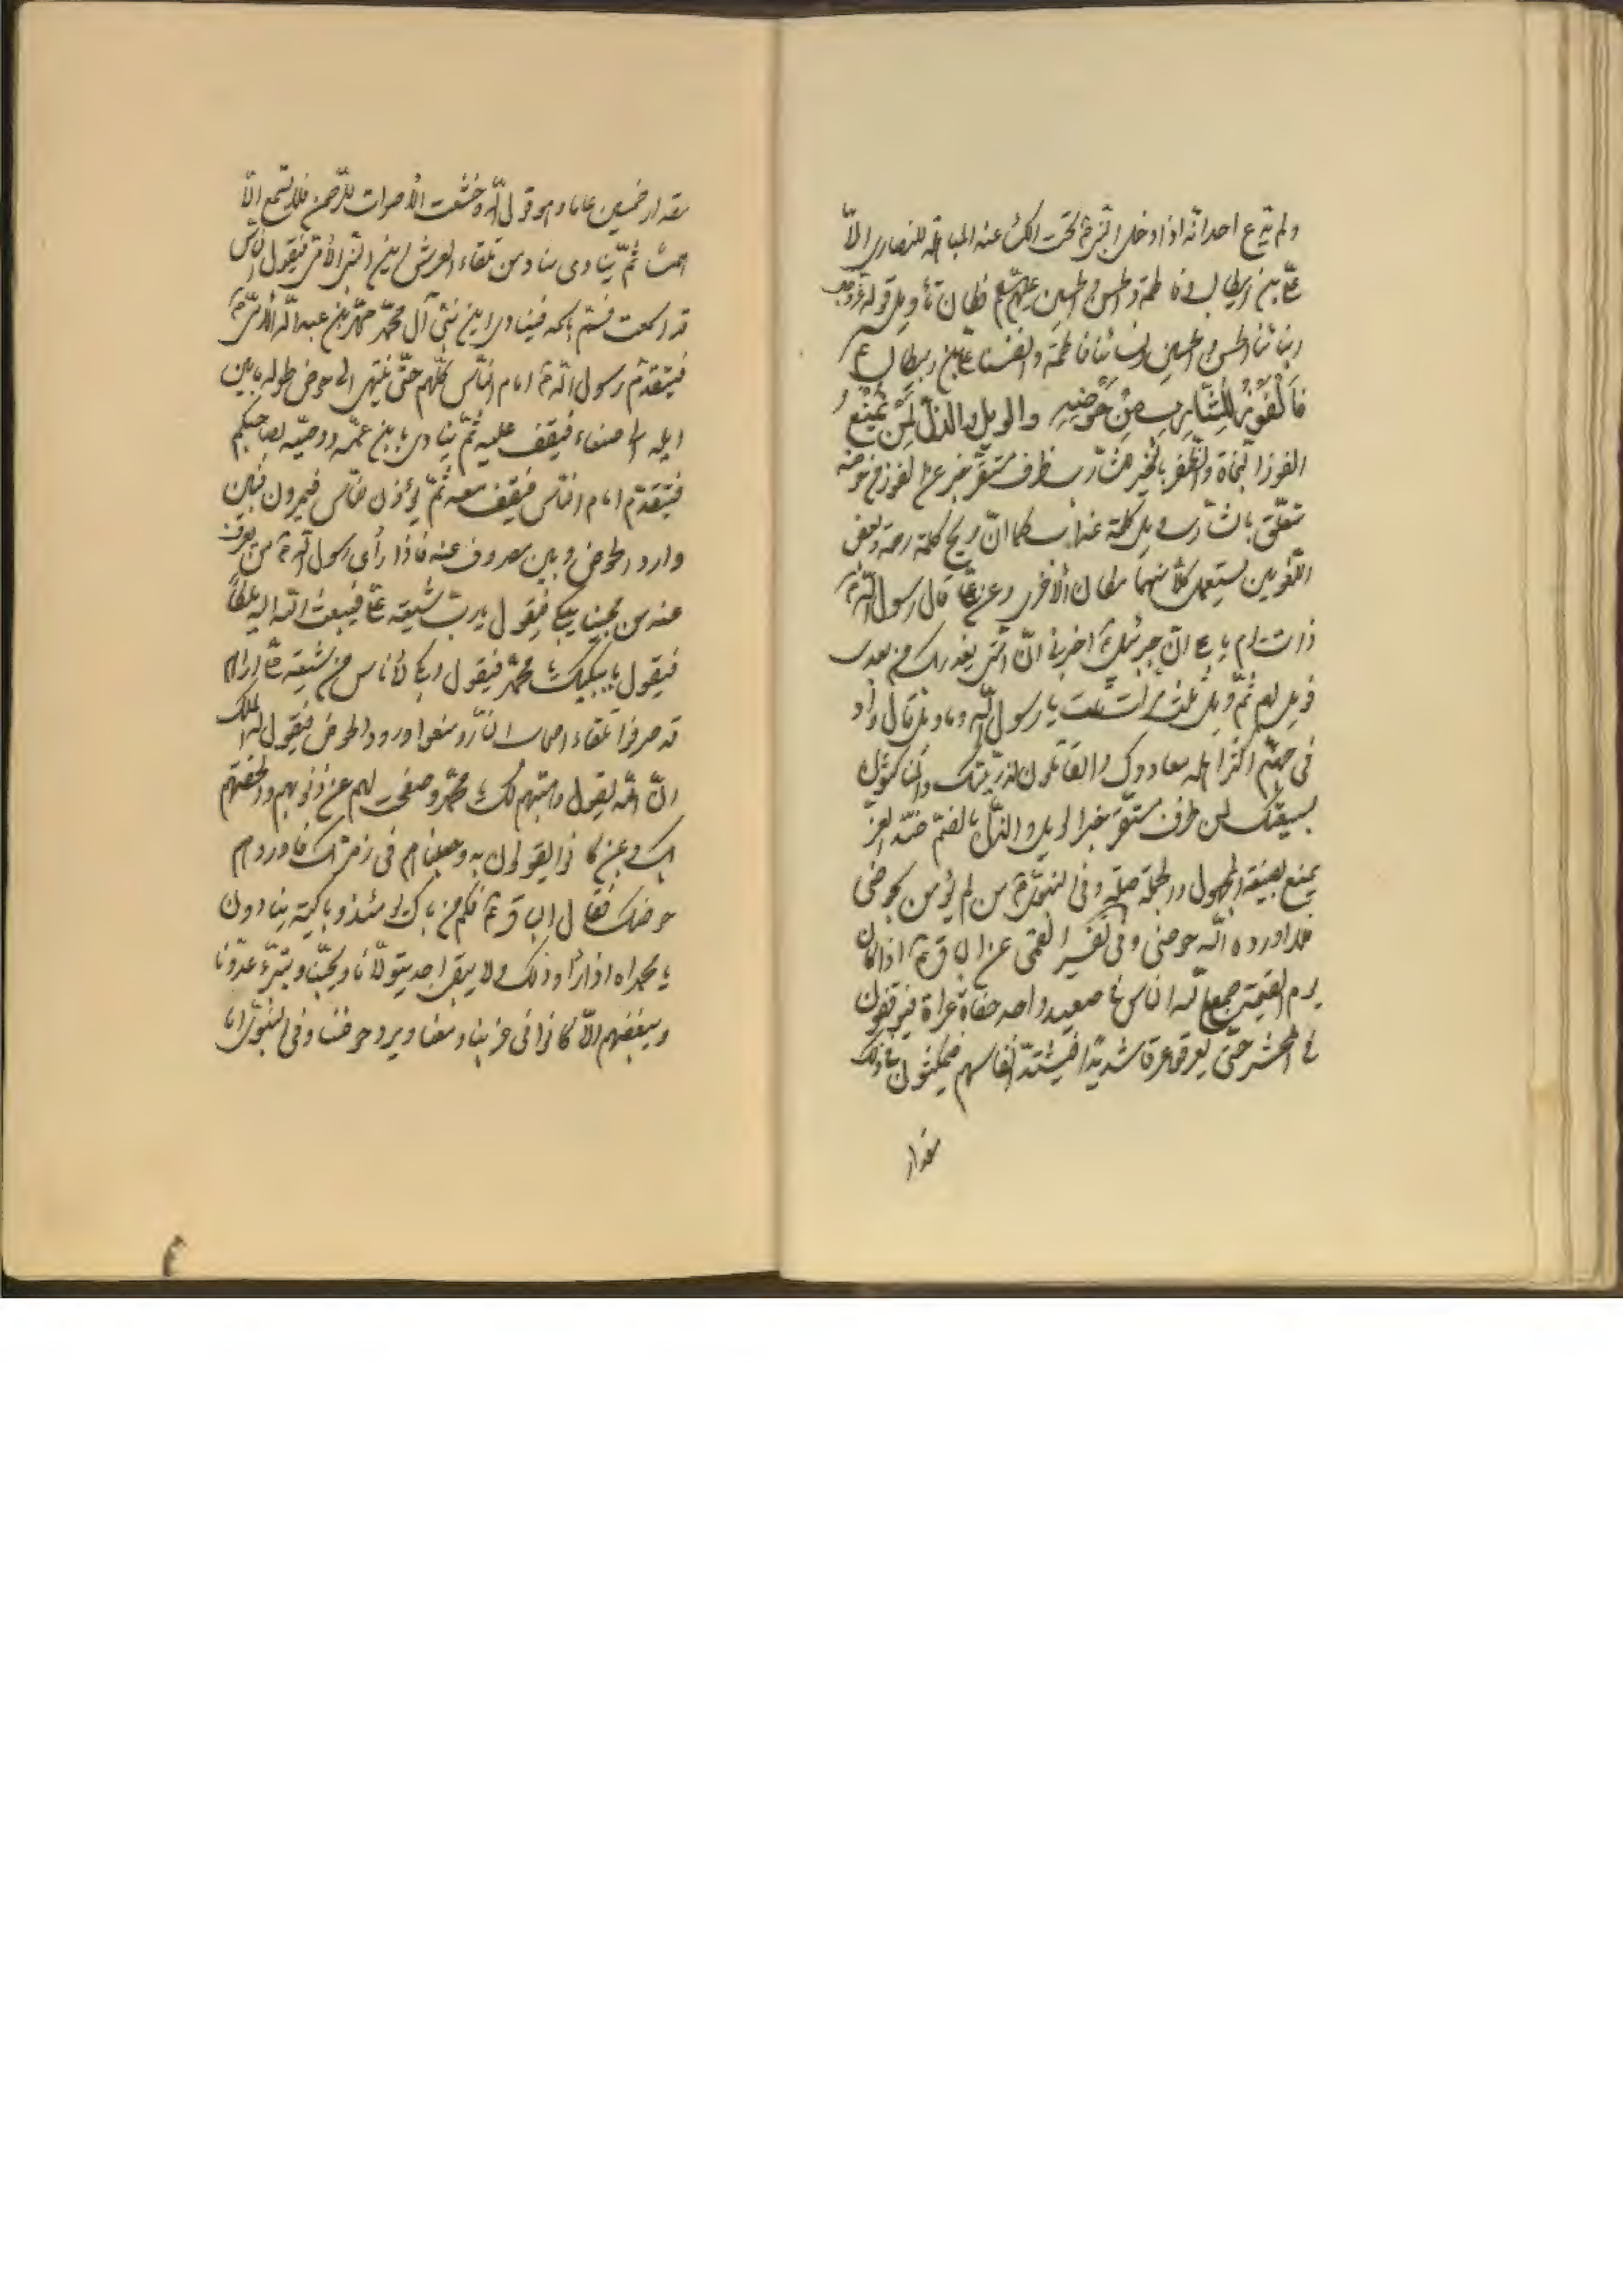 ولم يدع احد انه اذا دخل النبى ص تحت الكساء عند المباهلة للنصارى الّا
علىّ بن ابيطالب و فاطمة والحسن والحسين عليهم السلم فكان تأويل قوله عزوجل
ابنائنا الحسن والحسين ونسائنا فاطمة وانفسنا على بن ابيطالب ع
فَالْفَوْزُ لِلشَّارِبِ مِنْ حَوْضِهِ والويل والذلّ لِمَنْ يُمْنَعُ
الفوز النجاة والظفر بالخير للشارب ظرف مستقر خبر عن الفوز من حوضه
متعلق بالشارب ويل كلمة عذاب كما انّ ويح كلمة رحمة وبعض
اللغويين يستعمل كلاً منهما مكان الأخرى وعن علىّ قال رسول الله ص
ذات يوم يا على انّ جبرئيل اخبرنى انّ امتى يغدر بك من بعدى
فويل لهم ثمّ ويل ثلث مرات قلت يا رسول الله وما ويل قال واد
فى جهنّم اكثر اهله معادوك والقاتلون لذريّتك والناكثون
لبيعتك لمن ظرف مستقر خبر الويل والذلّ بالضمّ ضدّ العزّ
يمنع بصيغة المجهول والجملة صلة وفى النبوىّ ص من لم يؤمن بحوضى
فلا اورده الله حوضى وفى تفسير القمى عن الباقر ع اذا كان
يوم القيمة جمع الله الناس فى صعيد واحد حفاة عراة فيوقفون
فى المحشر حتّى يعرقوا عرقا شديدا فيشتدّ انفاسهم فيمكثون فى ذلك
مقدار
مقدار خمسين عاما وهو قول الله وخشعت الأصوات للرّحمن فلا تسمع الّا
همسا ثمّ ينادى مناد من تلقاء العرش اين النبى الأمى فيقول الناس
قد اسمعت فسمّ باسمه فينادى اين نبىّ آل محمّد محمّد بن عبدالله الأمّىّ ص
فيتقدّم رسول الله ص امام النّاس كلّهم حتّى ينتهى الى حوض طوله ما بين
ايله الى صنعاء فيقف عليه ثمّ ينادى يا بن عمّه ووصيّه بصاحبكم
فيتقدّم امام النّاس فيقف معه ثمّ يؤذن للنّاس فيمرون فبين
وارد الحوض وبين مصروف عنه فاذا رأى رسول الله ص من يصرف
عنه من محبينا يبكى فيقول يا ربّ شيعة علىّ فيبعث الله اليه ملكاً
فيقول ما يبكيك يا محمّد فيقول ابكى لأناس من شيعة علىّ اراهم
قد صرفوا تلقاء اصحاب النّار ومنعوا ورود الحوض فيقول له الملك
انّ الله يقول وهبتهم لك يا محمّد وصفحت لهم عن ذنوبهم والحقتهم
بك وبمن كانوا يقولون به وجعلناهم فى زمرتك فاوردهم
حوضك فقال الباقر ع فكم من باك يومئذ وباكية ينادون
يا محمداه اذا رأوا ذلك ولا يبقى احد يتولّانا ويحبّنا ويتبرّء عدوّنا
ويبغضهم الّا كانوا فى حزبنا ومعنا ويرد حوضنا وفى النبوىّ انا